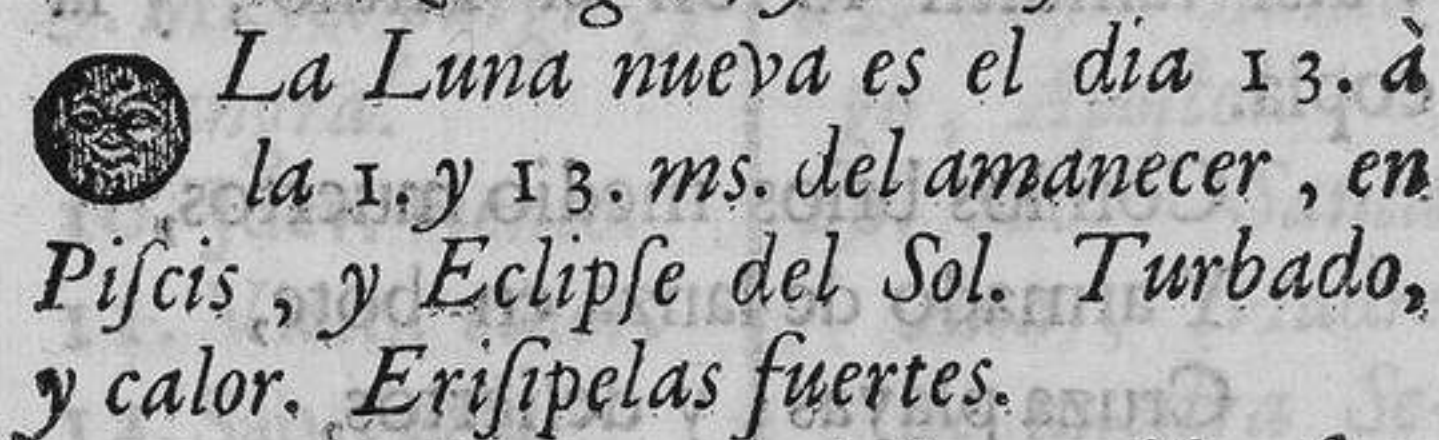 La Luna nueva es el dia 13. à
la 1. y 13. ms. del amanecer, en
Piſcis, y Eclipſe del Sol. Turbado,
y calor. Eriſipelas fuertes.